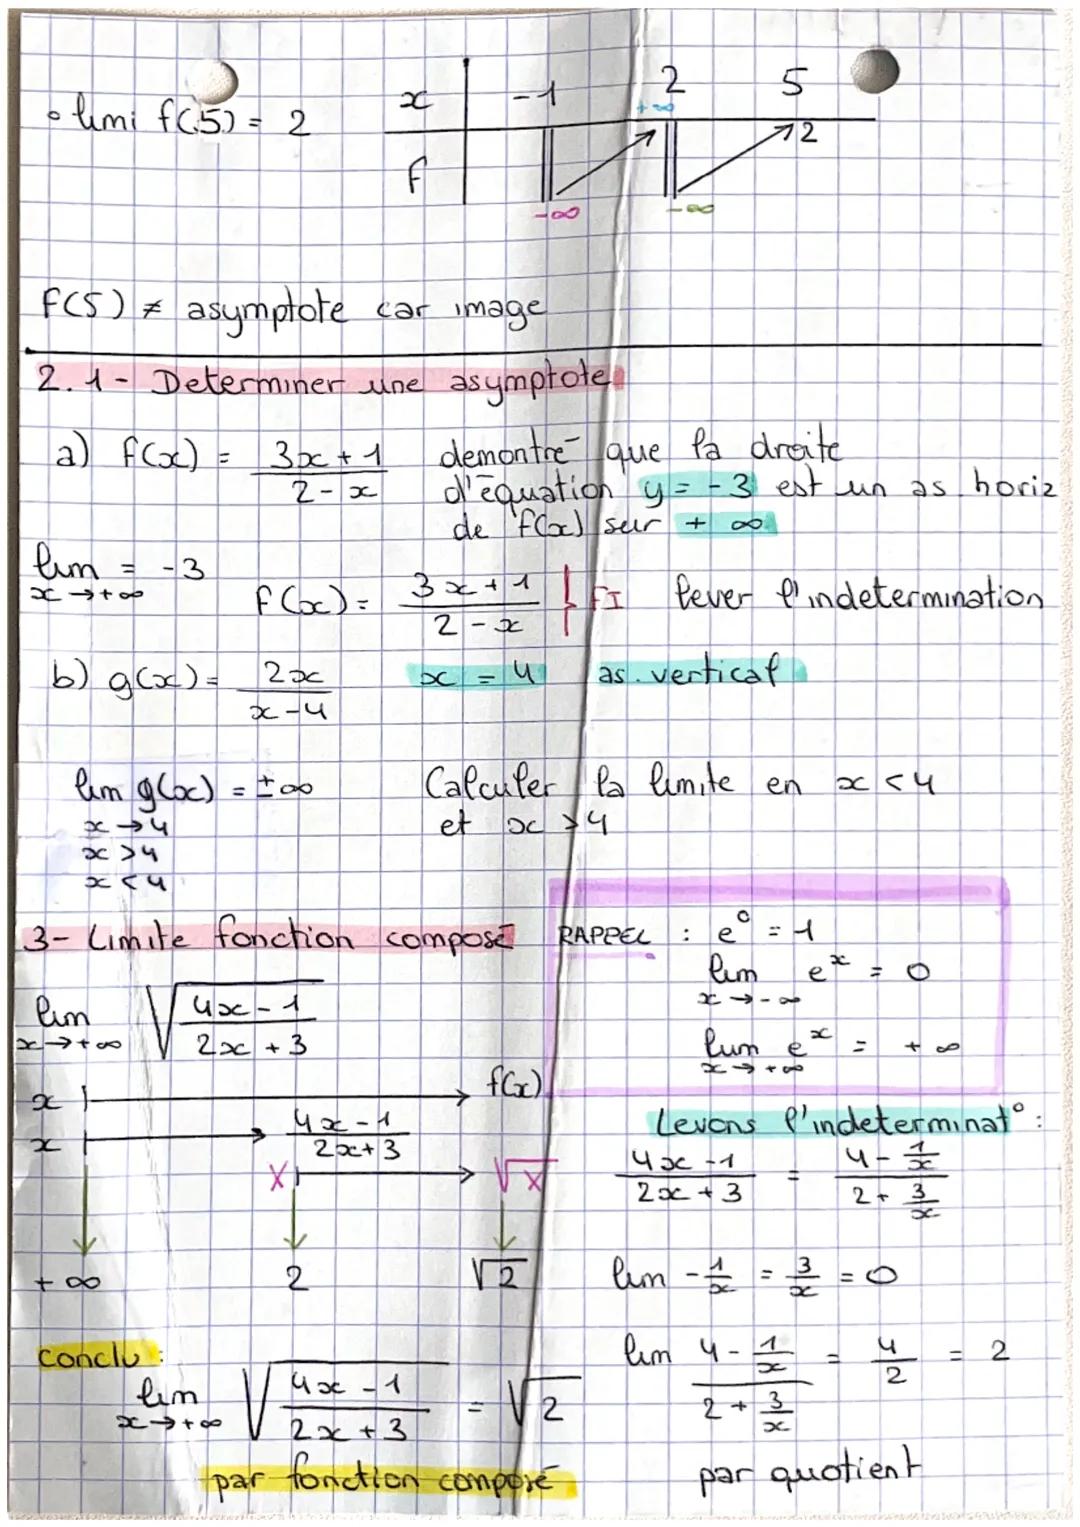 • limi f(5) = 2
x | -1 2 5
+∞ 2
f
-∞ -∞
f(5) ≠ asymptote car image
2.1- Determiner une asymptote
a) f(x) = (3x + 1)/(2 - x) demontre que la droite
d'équation y = -3 est un as. horiz
de f(x) sur +∞
lim = -3
x → +∞
f(x) = (3x + 1)/(2 - x) } FI lever l'indetermination
b) g(x) = 2x/(x - 4) x = 4 as. vertical
lim g(x) = ±∞ Calculer la limite en x < 4
x → 4 et x > 4
x > 4
x < 4
3- Limite fonction composé
RAPPEL : e⁰ = 1
lim eˣ = 0
x → -∞
lim eˣ = +∞
x → +∞
lim √((4x - 1)/(2x + 3))
x → +∞
x ⟼ f(x)
x ⟼ (4x - 1)/(2x + 3)
X ⟼ √X
+∞ 2 √2
Levons l'indeterminat° :
(4x - 1)/(2x + 3) = (4 - 1/x)/(2 + 3/x)
lim -1/x = 3/x = 0
lim (4 - 1/x)/(2 + 3/x) = 4/2 = 2
par quotient
conclu :
lim √((4x - 1)/(2x + 3)) = √2
x → +∞
par fonction composé